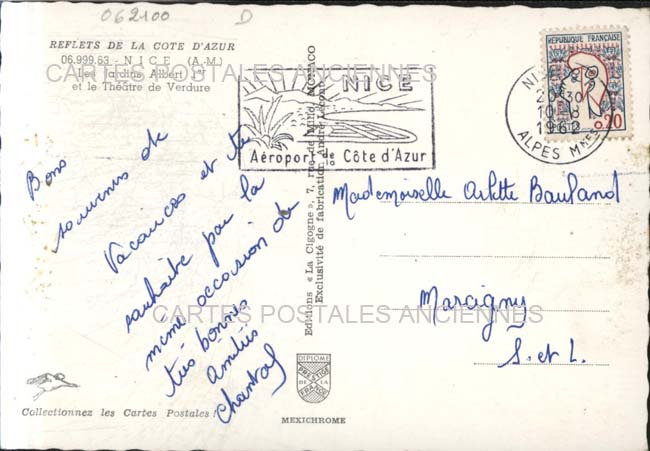 062100 D
REFLETS DE LA COTE D'AZUR
06.999.63 - NICE (A.-M.)
Les Jardins Albert 1er
et le Théâtre de Verdure
CARTES POSTALES ANCIENNES
NICE
Aéroport de la Côte d'Azur
REPUBLIQUE FRANÇAISE
0,20
20 30
ALPES Mmes
Bons
souvenirs de
Vacances et te
souhaite par la
même occasion de
très bonnes
amitiés
Chantal
Editions « La Cigogne », 7, MONACO
Exclusivité de fabrication André
Mademoiselle Arlette Bauland
Marcigny
S. et L.
CARTES POSTALES ANCIENNES
DIPLOME
PRESTIGE
DE LA
FRANCE
Collectionnez les Cartes Postales !
MEXICHROME